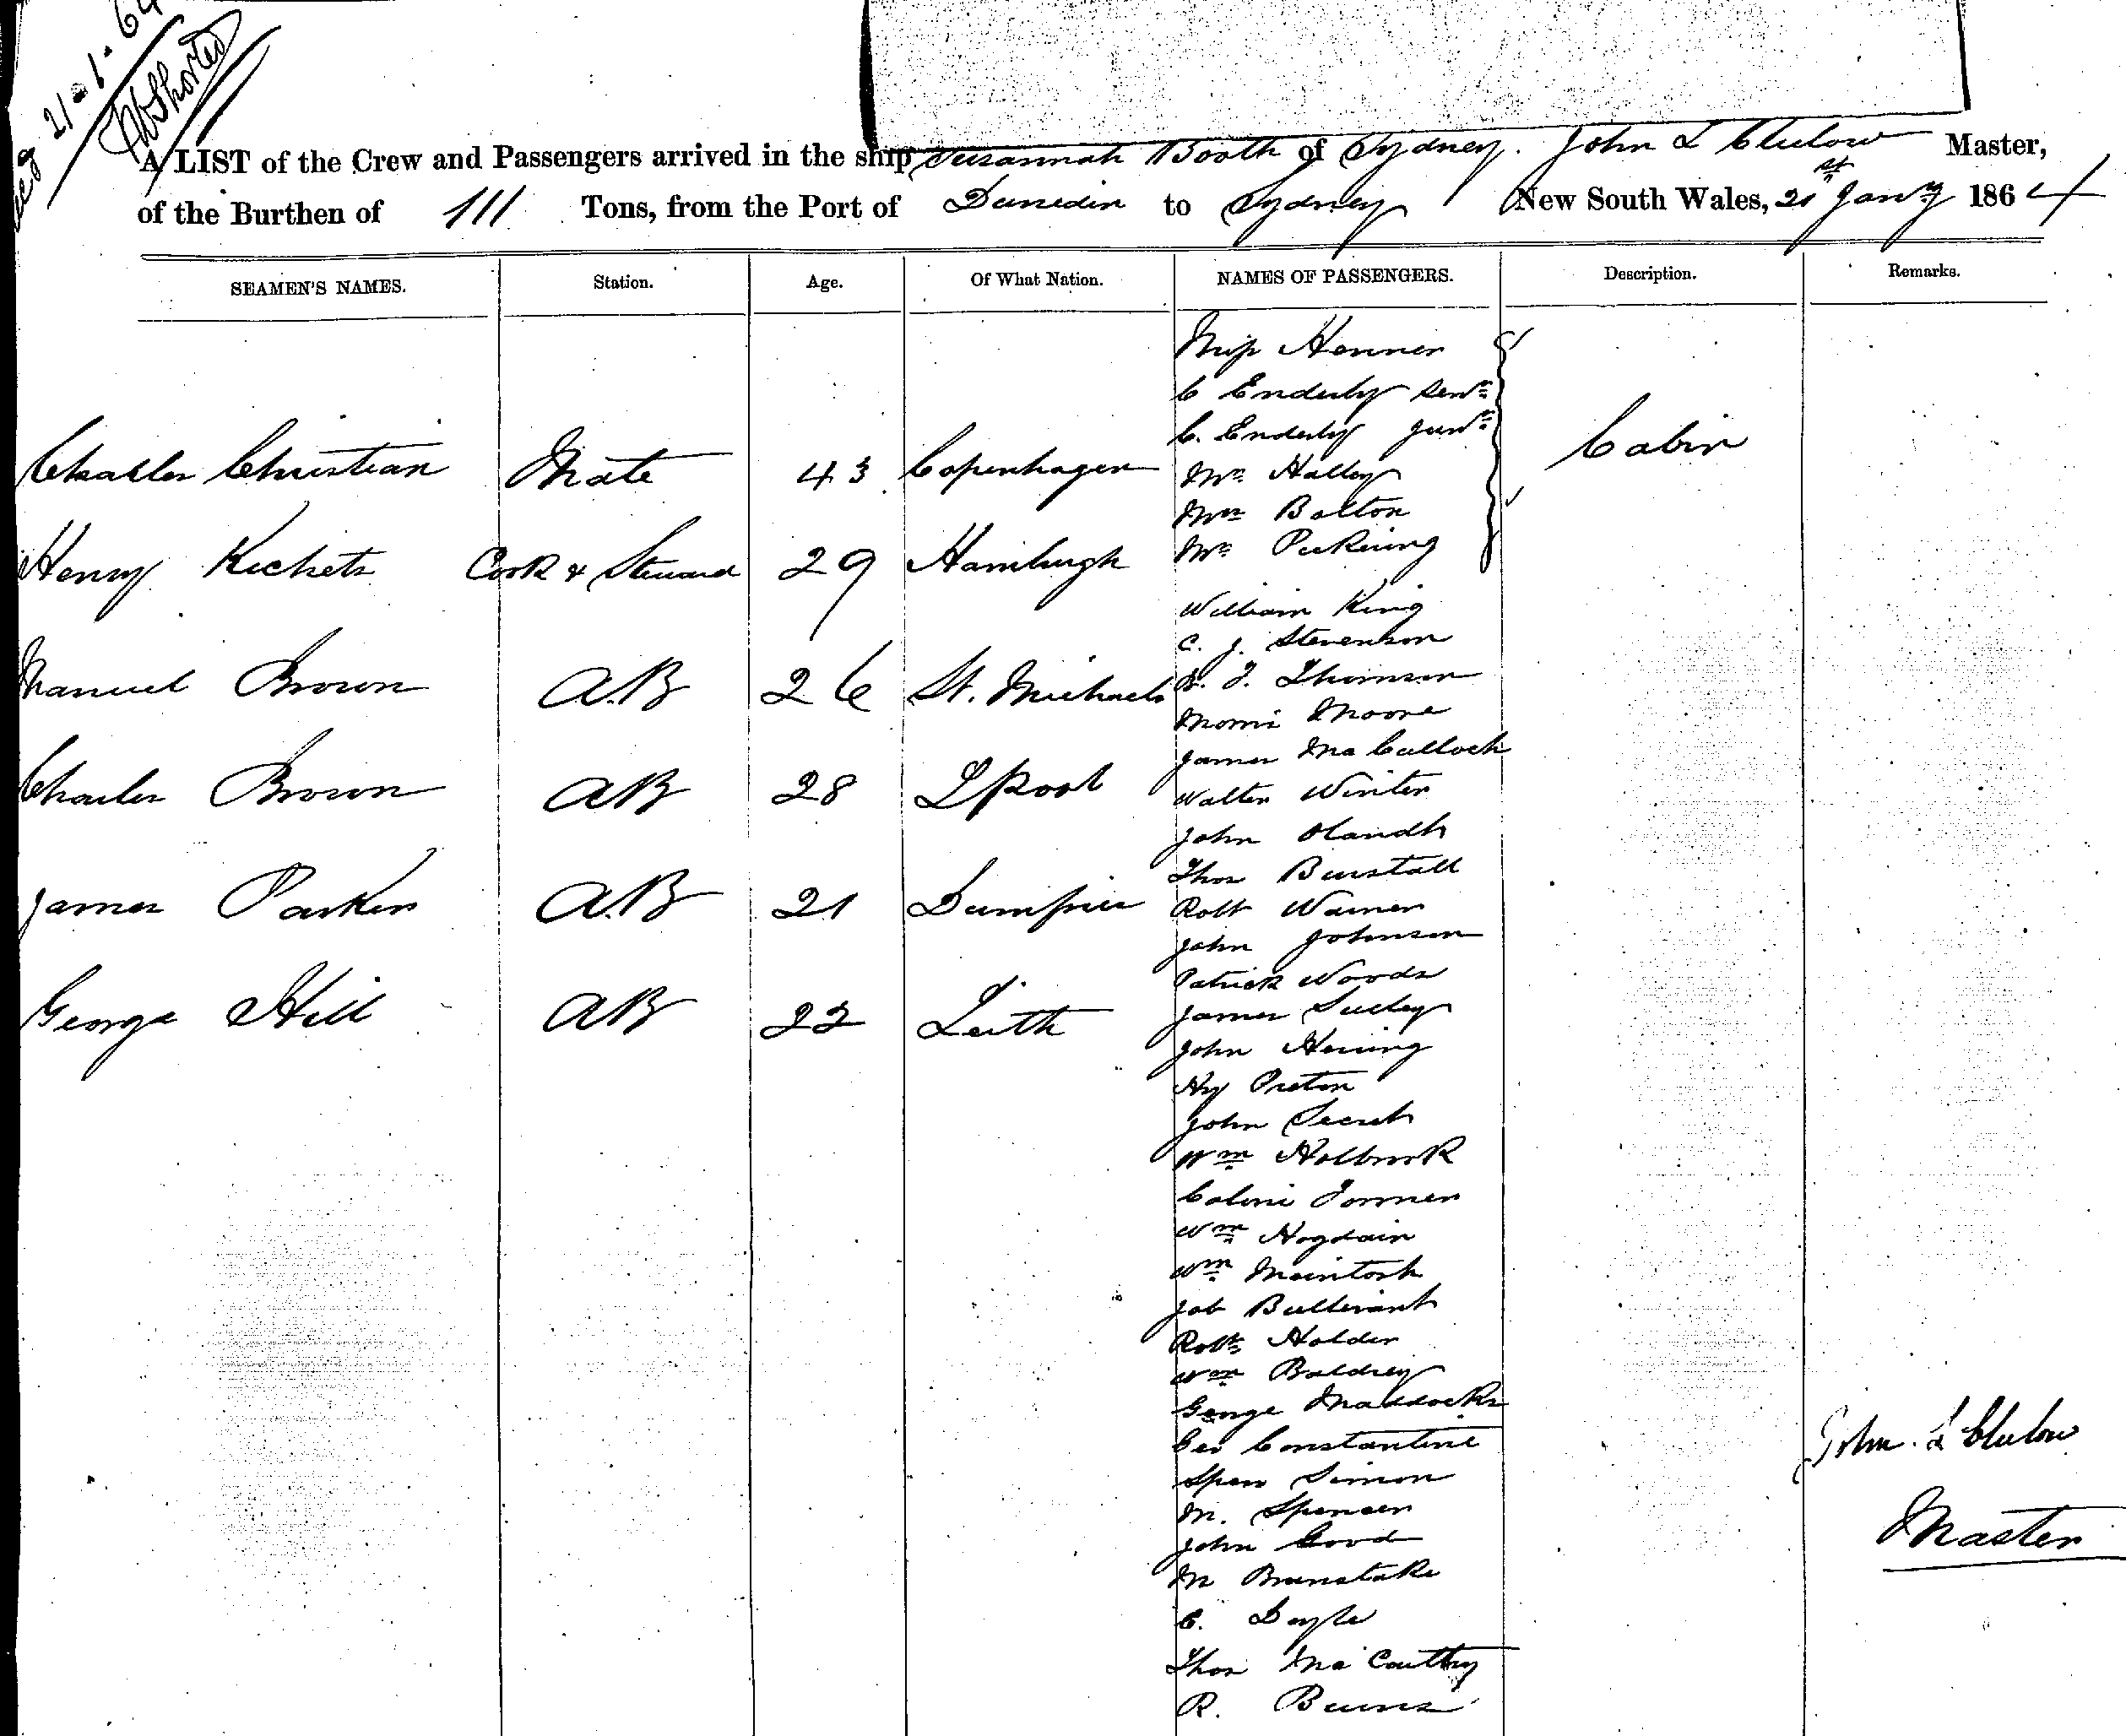 21-1-64
A LIST of the Crew and Passengers arrived in the ship Susannah Booth of Sydney. John L Clulow Master,
of the Burthen of 111 Tons, from the Port of Dunedin to Sydney New South Wales, 21st Jany 1864
SEAMEN'S NAMES. Station. Age. Of What Nation. NAMES OF PASSENGERS. Description. Remarks.
Miss Henner
C Enderby Senr
C. Enderby Junr
Charles Christian Mate 43 Copenhagen Mr Halley Cabin
Mrs Bolton
Henry Kichets Cook & Steward 29 Hamburgh Mr Pickering
William King
C. J. Stevenson
Manuel Brown A.B 26 St. Michaels J. Thomson
Morris Moore
James Mac Culloch
Charles Brown AB 28 LPool Walter Winter
John Olandh
Thos Burstall
James Parker A.B 21 Dumfries Robt Warner
John Johnson
Patrick Woods
George Hill AB 22 Leith James
John Hering
Hy Preton
John Secret
Wm Holbrook
Wm Hogdain
Wm Macintosh
Job Bullivant
Robt Holder
Wm Baldrey
George Maddocks
Geo Constantine
Simon
M. Spencer
John Good
M
C. Doyle
Thos Mac Carthy
R. Burns
John. L Clulow
Master